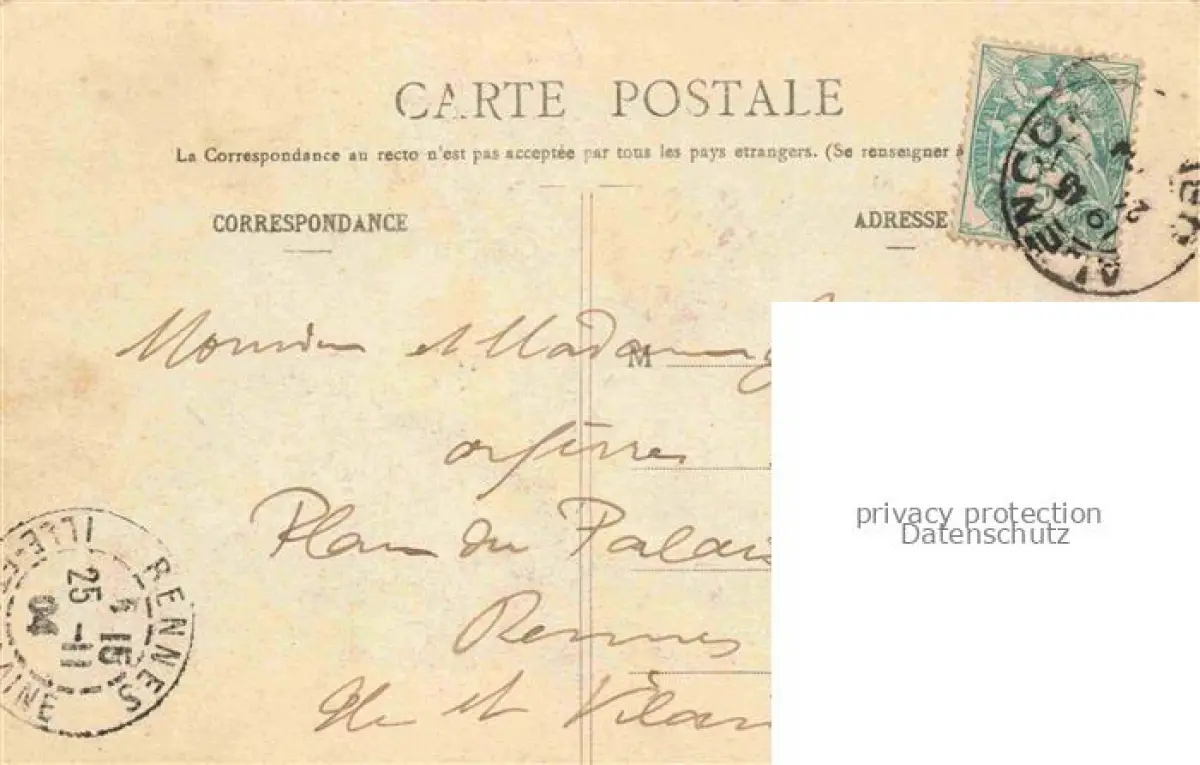 CARTE POSTALE
La Correspondance au recto n'est pas acceptée par tous les pays etrangers. (Se renseigner à
CORRESPONDANCE
ADRESSE
ALENCO
Monsieur et Madame
M
orfèvres
Place du Palais
Rennes
Ille et Vilaine
RENNES
ILLE-ET-VILAINE
4 15
25 -11
04
privacy protection
Datenschutz